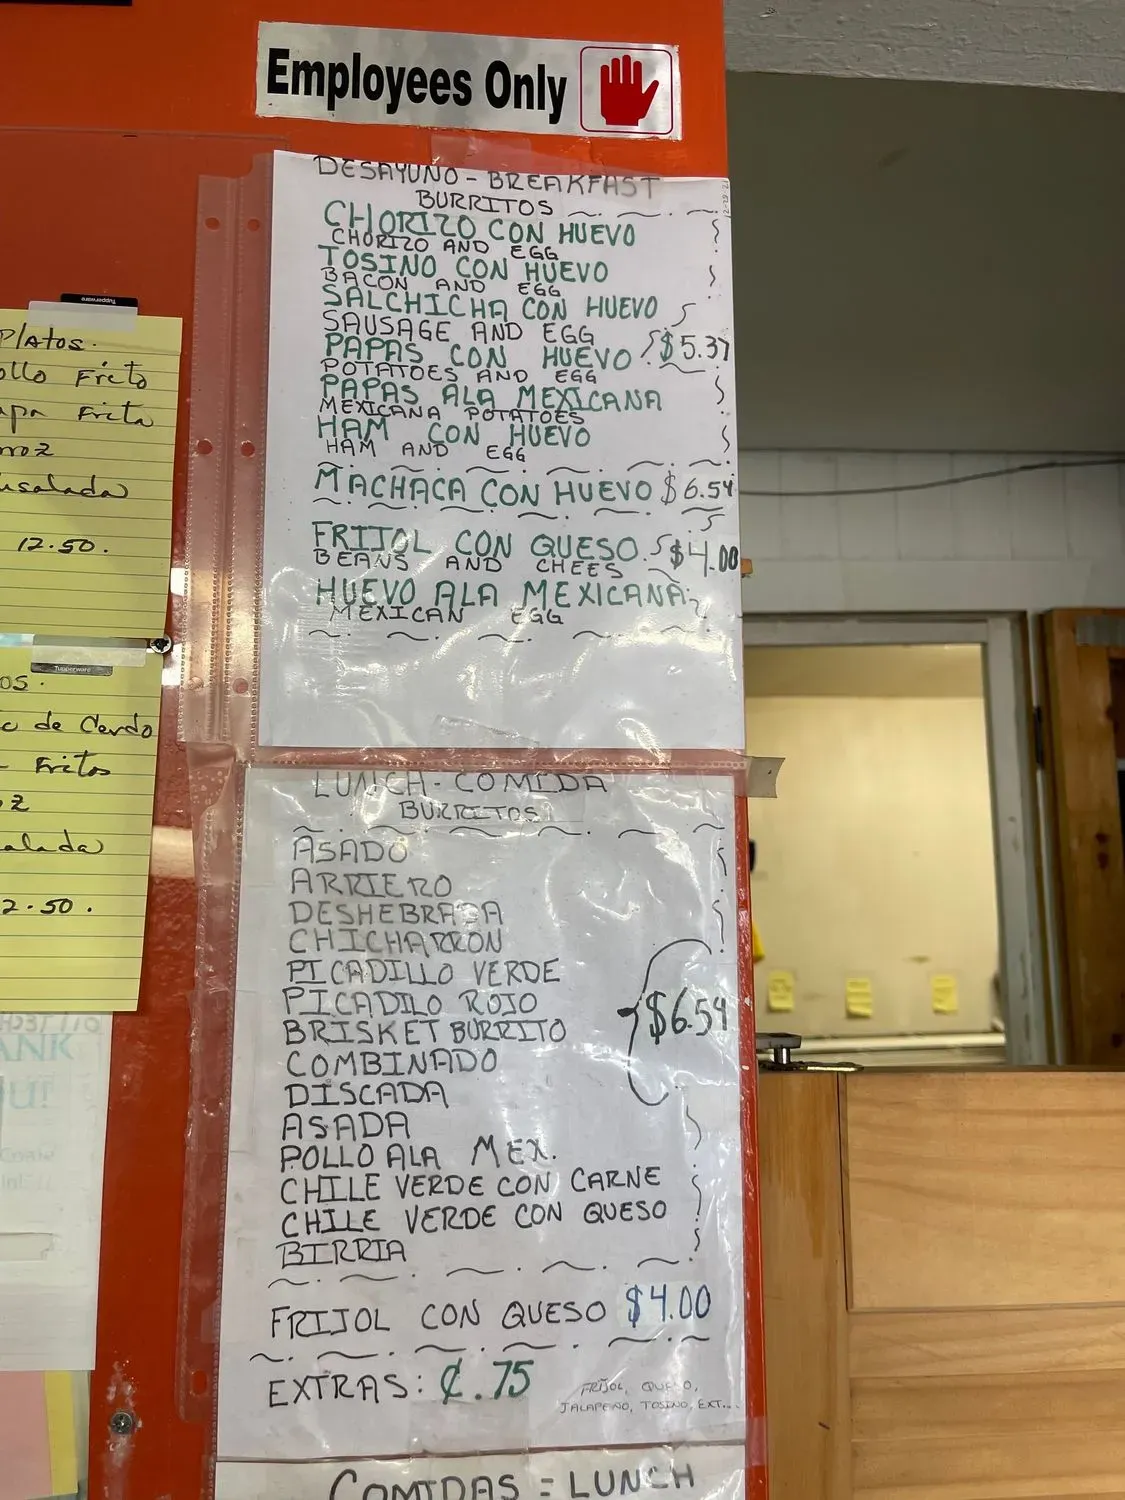 Employees Only
DESAYUNO - BREAKFAST
BURRITOS
CHORIZO CON HUEVO
CHORIZO AND EGG
TOSINO CON HUEVO
BACON AND EGG
SALCHICHA CON HUEVO
SAUSAGE AND EGG
PAPAS CON HUEVO $5.37
POTATOES AND EGG
PAPAS ALA MEXICANA
MEXICANA POTATOES
HAM CON HUEVO
HAM AND EGG
MACHACA CON HUEVO $6.54
FRIJOL CON QUESO $4.00
BEANS AND CHEES
HUEVO ALA MEXICANA
MEXICAN EGG
LUNCH - COMIDA
BURRITOS
ASADO
ARRIERO
DESHEBRADA
CHICHARRON
PICADILLO VERDE
PICADILO ROJO
BRISKET BURRITO
COMBINADO
DISCADA
ASADA
POLLO ALA MEX.
CHILE VERDE CON CARNE
CHILE VERDE CON QUESO
BIRRIA
$6.54
FRIJOL CON QUESO $4.00
EXTRAS: ¢.75
FRIJOL, QUESO,
JALAPEÑO, TOSINO, EXT...
COMIDAS = LUNCH
Tupperware
Platos.
ollo Frito
apa Frita
rroz
nsalada
12.50.
Tupperware
os.
de Cerdo
Fritos
z
alada
2.50.
ANK
U!